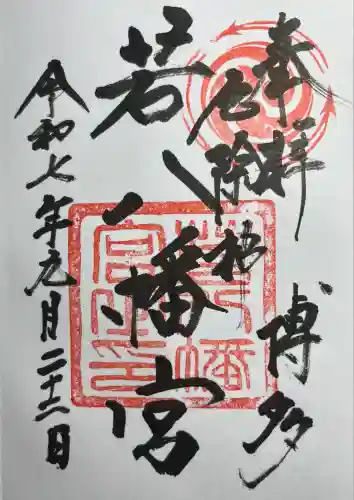 奉拝
博多
厄除
若八幡宮
令和七年元月二十二日